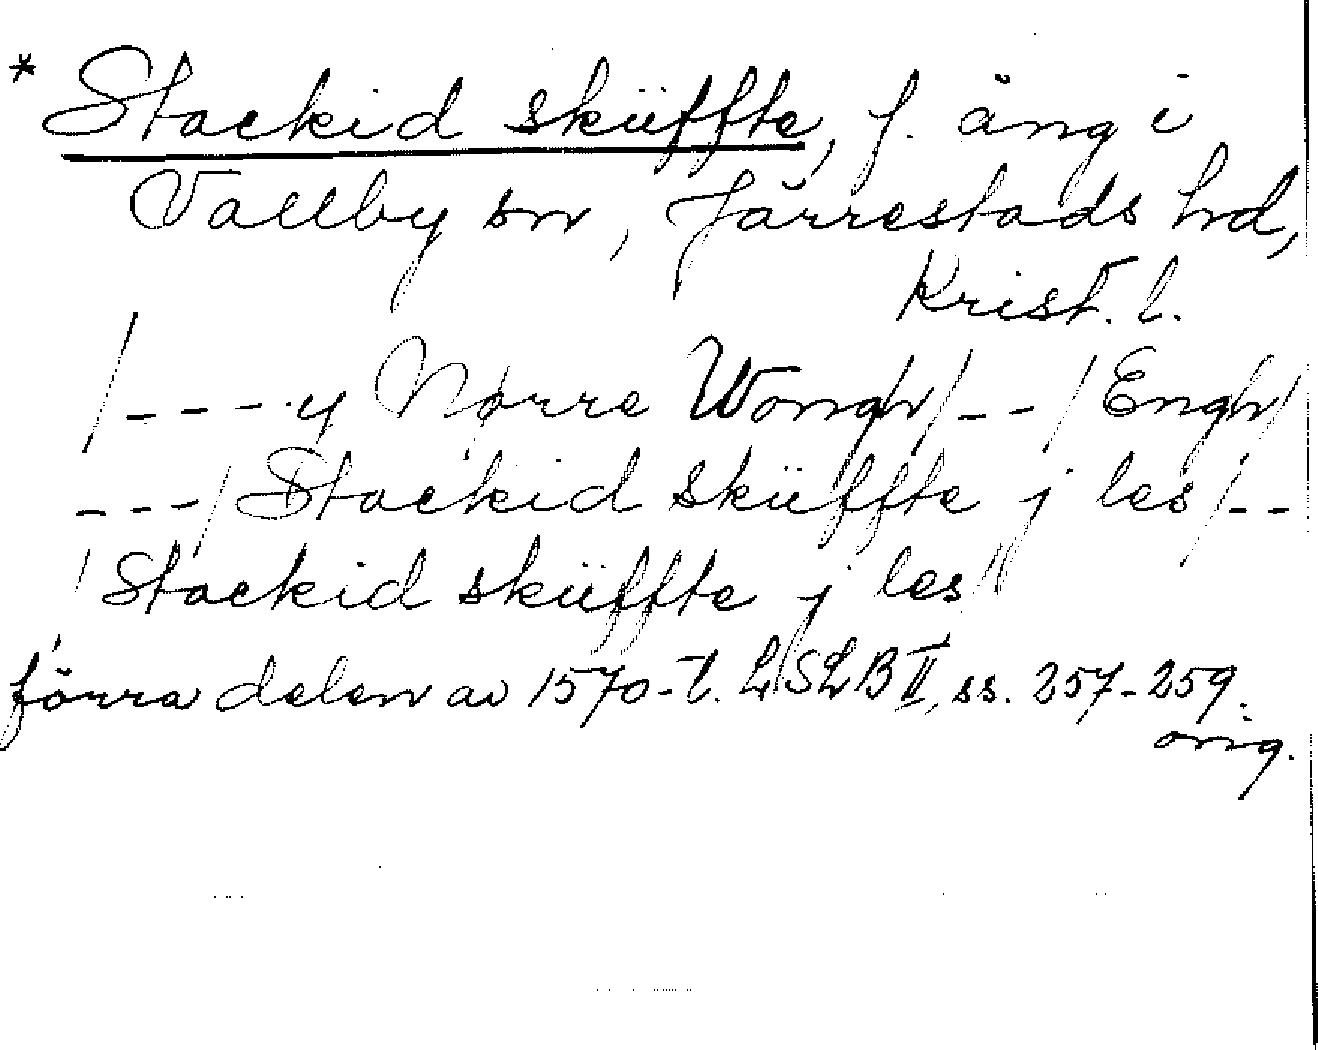 * Stackid sküffte, f. äng i
Vallby sn, Järrestads hd,
Krist. l.
/----y Nørre Wongh/--/Engh/
---/Stackid sküffte j les/--
/Stackid sküffte j les//
förra delen av 1570-t. LSLB II, ss. 257-259.
orig.